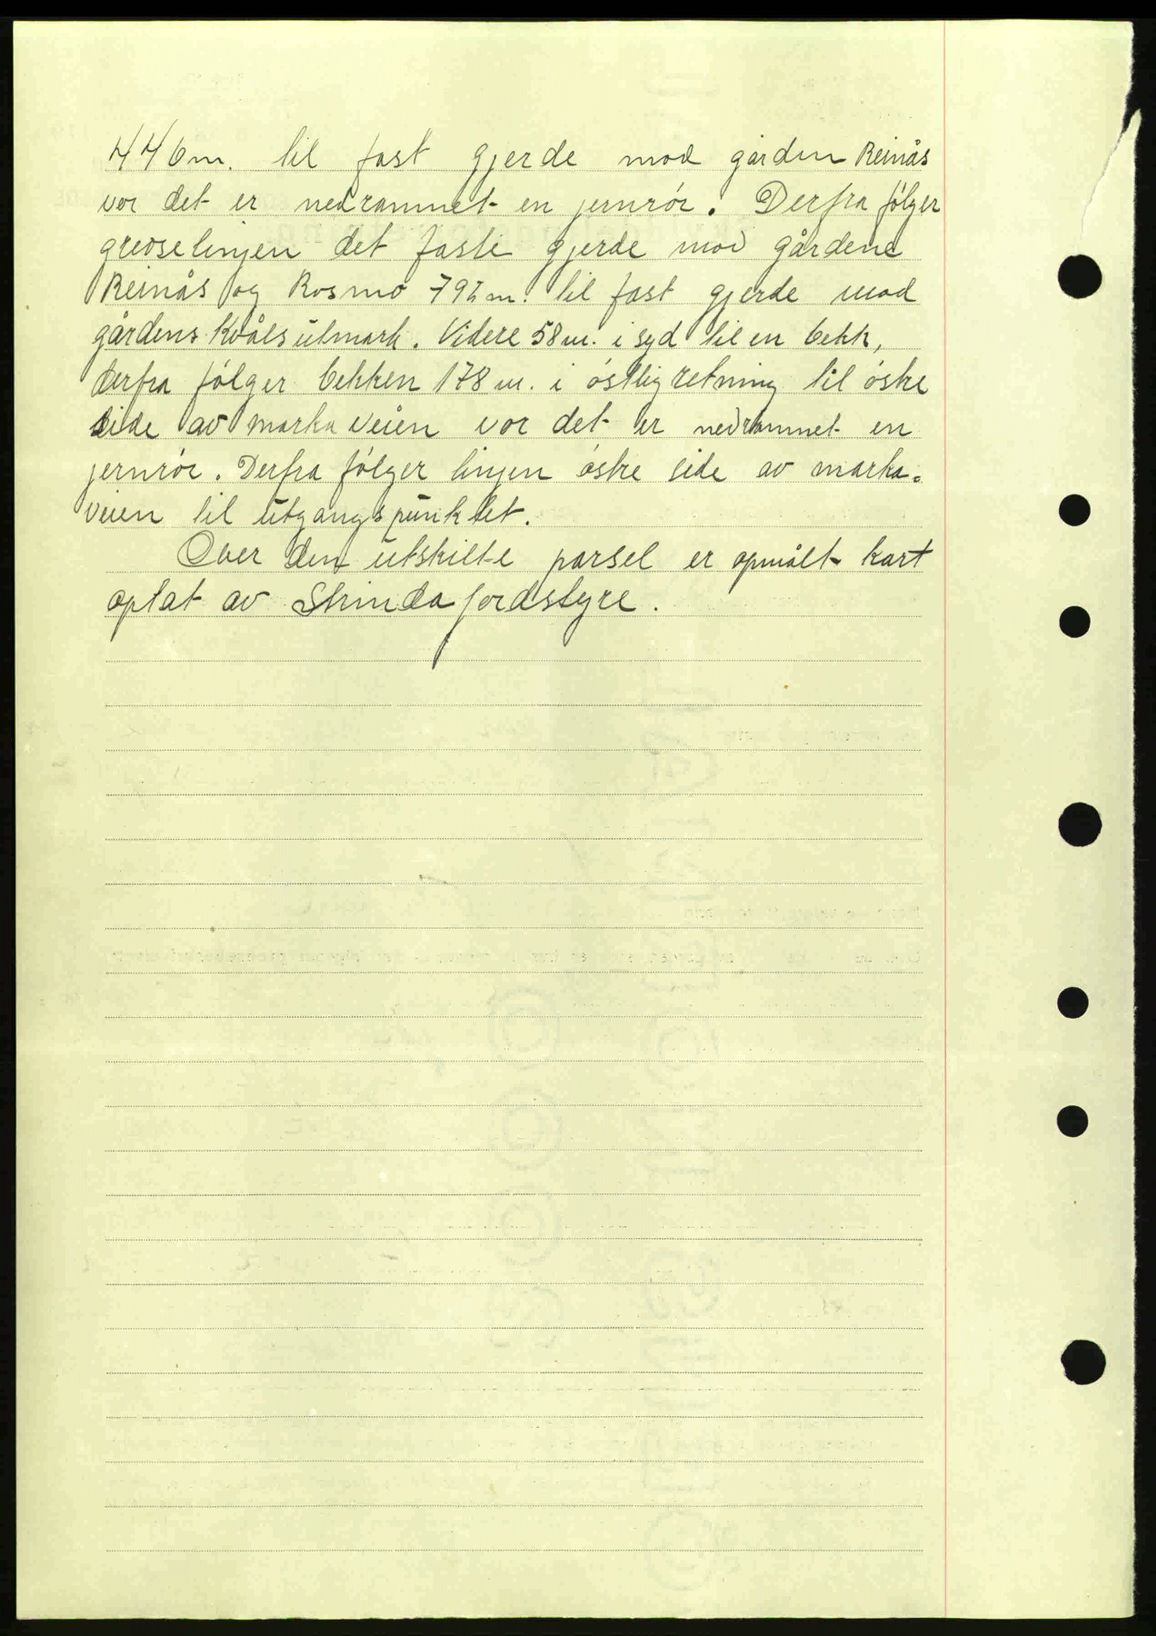 446m. til fast gjerde mod gården Reinås
vor det er nedrammet en jernrör. Derfra følger
grenselinjen det faste gjerde mod gårdene
Reinås og Rosmo 792m. til fast gjerde mod
gårdens Kvåls utmark. Videre 58m. i syd til en bekk,
derfra følger bekken 178m. i östlig retning til östre
side av markaveien vor det er nedrammet en
jernrör. Derfra følger linjen östre side av marka-
veien til utgangspunktet.
Over den utskilte parsel er opmålt kart
optat av Strinda jordstyre.